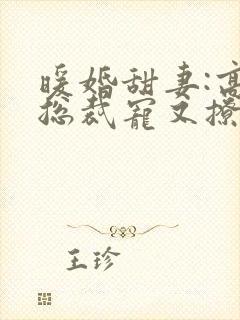 暖婚甜妻:高
总裁宠又撩
王珍